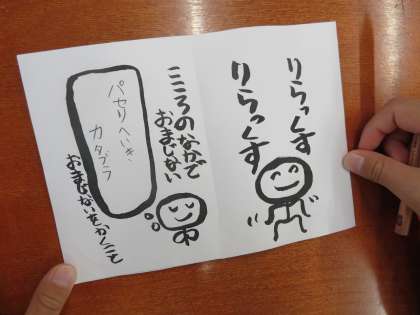 りらっくす
りらっくす
こころのなかで
おまじない
パセリへいき、
カタブラ
おまじないをかくこと